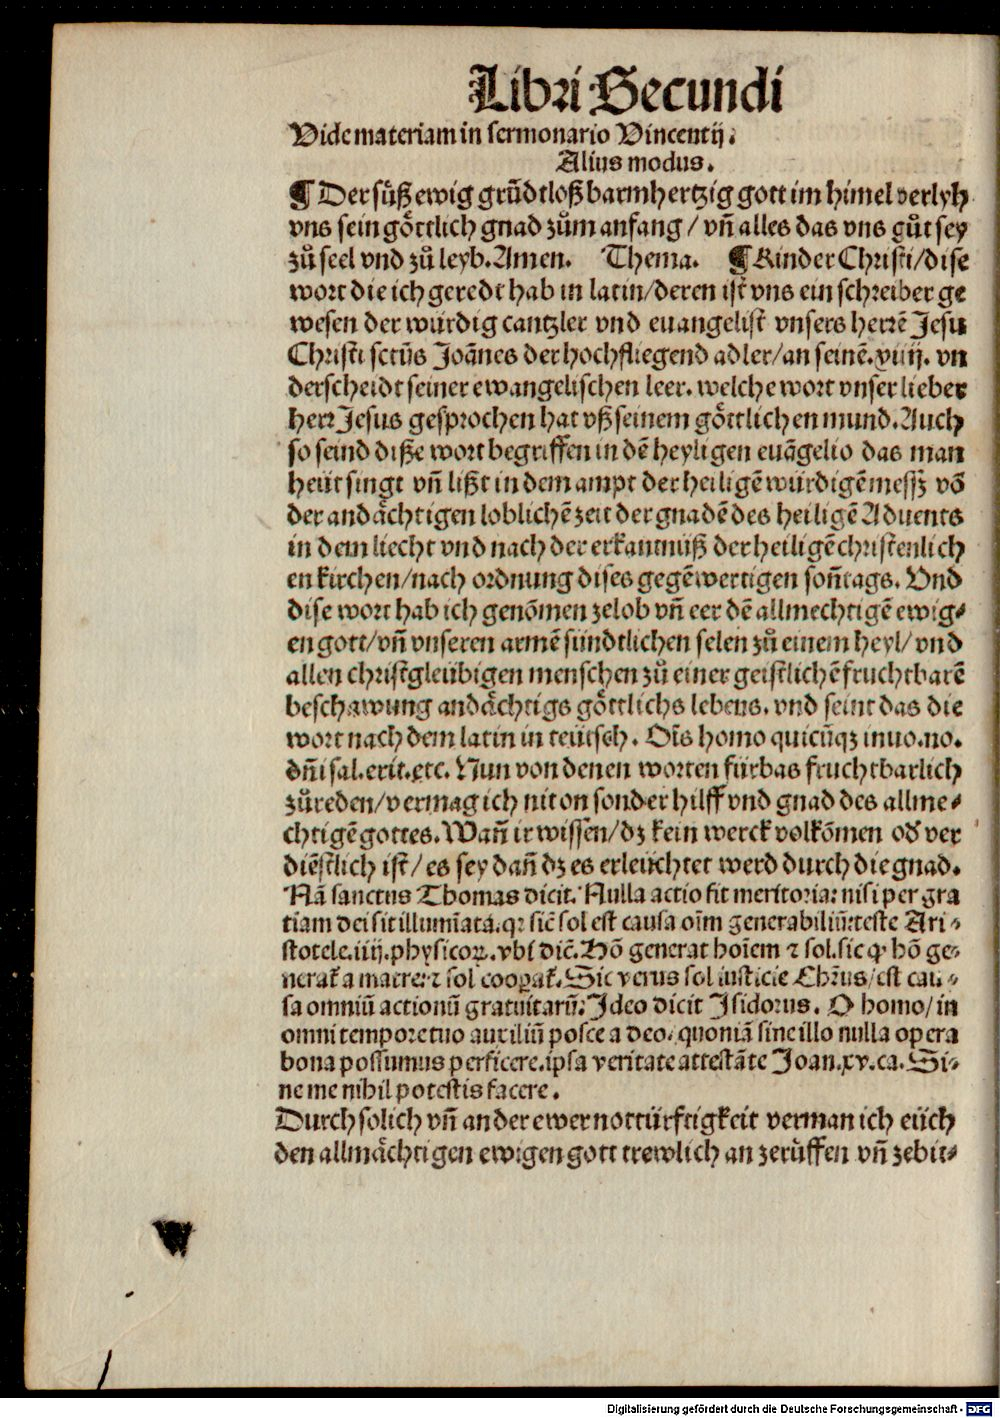 Libri Secundi
Vide materiam in sermonario Vincentij.
Alius modus.
¶ Der süß ewig grūdtloß barmhertzig gott im himel verlyh
vns sein göttlich gnad zům anfang / vn̄ alles das vns gůt sey
zů seel vnd zů leyb. Amen. Thema. ¶ Kinder Christi/dise
wort die ich geredt hab in latin/deren ist vns ein schreiber ge
wesen der würdig cantzler vnd euangelist vnsers herrē Jesu
Christi sctūs Joānes der hochfliegend adler/an seinē. vn
derscheidt seiner ewangelischen leer. welche wort vnser lieber
herr Jesus gesprochen hat vß seinem göttlichen mund. Auch
so seind diße wort begriffen in dē heyligen euāgelio das man
heüt singt vn̄ lißt in dem ampt der heiligē würdigē messz vō
der andächtigen loblichē zeit der gnadē des heiligē Aduents
in dem liecht vnd nach der erkantnüß der heiligē christenlich
en kirchen/nach ordnung dises gegēwertigen son̄tags. Vnd
dise wort hab ich genōmen zelob vn̄ eer dē allmechtigē ewig⸗
en gott/vn̄ vnseren armē sündtlichen selen zů einem heyl/ vnd
allen christgleübigen menschen zů einer geistlichē fruchtbarē
beschawung andächtigs göttlichs lebens. vnd seint das die
wort nach dem latin in teütsch. Oīs homo quicūqꝫ inuo.no.
dn̄i sal.erit.ꝛc. Nun von denen worten fürbas fruchtbarlich
zůreden/vermag ich nit on sonder hilff vnd gnad des allme⸗
chtigē gottes. Wan̄ ir wissen/dz kein werck volkōmen od̕ ver
diēstlich ist / es sey dan̄ dz es erleüchtet werd durch die gnad.
Nā sanctus Thomas dicit. Nulla actio fit meritoria: nisi per gra
tiam dei sit illumīata. qꝛ sic̄ sol est causa oīm generabiliū: teste Ari⸗
stotele.iiij.physicoꝝ. vbi dic̄. Hō generat hoīem ⁊ sol. sic ꝙ hō ge⸗
nerat̄ a matre: ⁊ sol cooꝑat̄. Sic verus sol iusticie Chr̄us/est cau⸗
sa omniū actionū gratuitarū: Ideo dicit Isidorus. O homo/ in
omni tempore tuo auxiliū posce a deo. quoniā sine illo nulla opera
bona possumus perficere. ipsa veritate attestāte Joan.xv.ca. Si⸗
ne me nihil potestis facere.
Durch solich vn̄ ander ewer nottürftigkeit verman ich eüch
den allmächtigen ewigen gott trewlich an zerüffen vn̄ zebit⸗
Digitalisierung gefördert durch die Deutsche Forschungsgemeinschaft - DFG